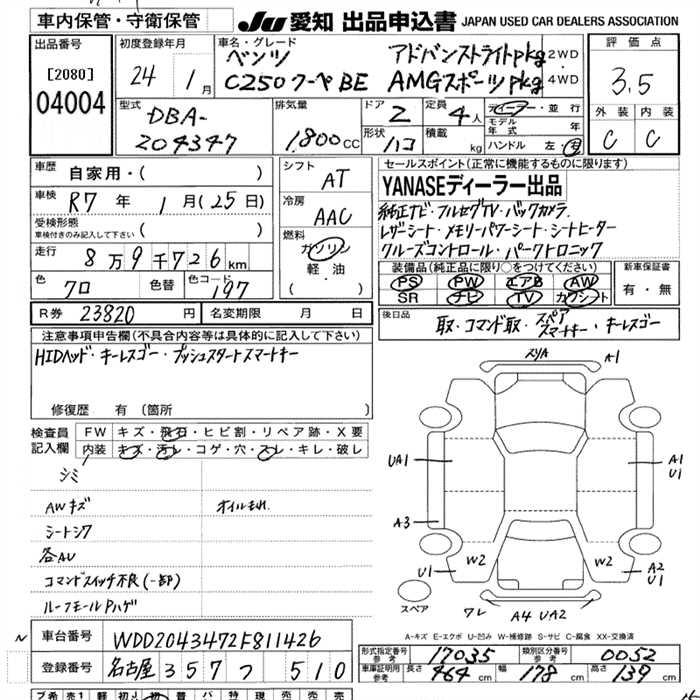 車内保管・守衛保管 JU 愛知 出品申込書 JAPAN USED CAR DEALERS ASSOCIATION
出品番号 初度登録年月 車名・グレード 評価点
[2080] 24 1月 ベンツ アドバンストライトpkg 2WD
04004 C250クーペBE AMGスポーツpkg 4WD 3.5
型式 排気量 ドア 定員 ディーラー・並行 外装 内装
DBA- 2 4人 モデル年式 年
204347 1,800cc 形状 ハコ 積載 kg ハンドル 左・右 C C
車歴 自家用・( ) シフト AT セールスポイント(正常に機能するものに限ります)
車検 R7年 1月(25日) 冷房 AAC YANASEディーラー出品
受検形態 車検付きのみ記入して下さい ( ) 純正ナビ・フルセグTV・バックカメラ
燃料 ガソリン 軽・油 ( ) レザーシート・メモリーパワーシート・シートヒーター
走行 8万9千726km クルーズコントロール・パークトロニック
色 クロ 色替 色コード 197 装備品(純正品に限り○をつけてください) 新車保証書
PS PW エアB AW 有・無
SR ナビ TV カワシート
R券 23820円 名変期限 月 日 後日品 取・コマンド取・スペアスマートキー・キーレスゴー
注意事項申告欄(不具合内容等は具体的に記入して下さい)
HIDヘッド・キーレスゴー・プッシュスタートスマートキー
修復歴 有 (箇所 )
検査員記入欄 FW キズ・飛石・ヒビ割・リペア跡・X要
内装 キズ・汚れ・コゲ・穴・スレ・キレ・破レ
シミ
AWキズ オイルもれ
シートシワ
各AU
コマンドスイッチ不良(一部)
ルーフモールPハゲ
スリA A1
UA1 A1 U1
A3
U1 W2 W2 A2 U1
スペア ワレ A4 UA2
A-キズ E-エクボ U-凹み W-補修跡 S-サビ C-腐食 XX-交換済
N 車台番号 WDD2043472F811426 形式指定番号 参考 17035 類別区分番号 参考 0052
登録番号 名古屋 357つ 510 車庫証明用 参考 長さ 464cm 幅 178cm 高さ 139cm